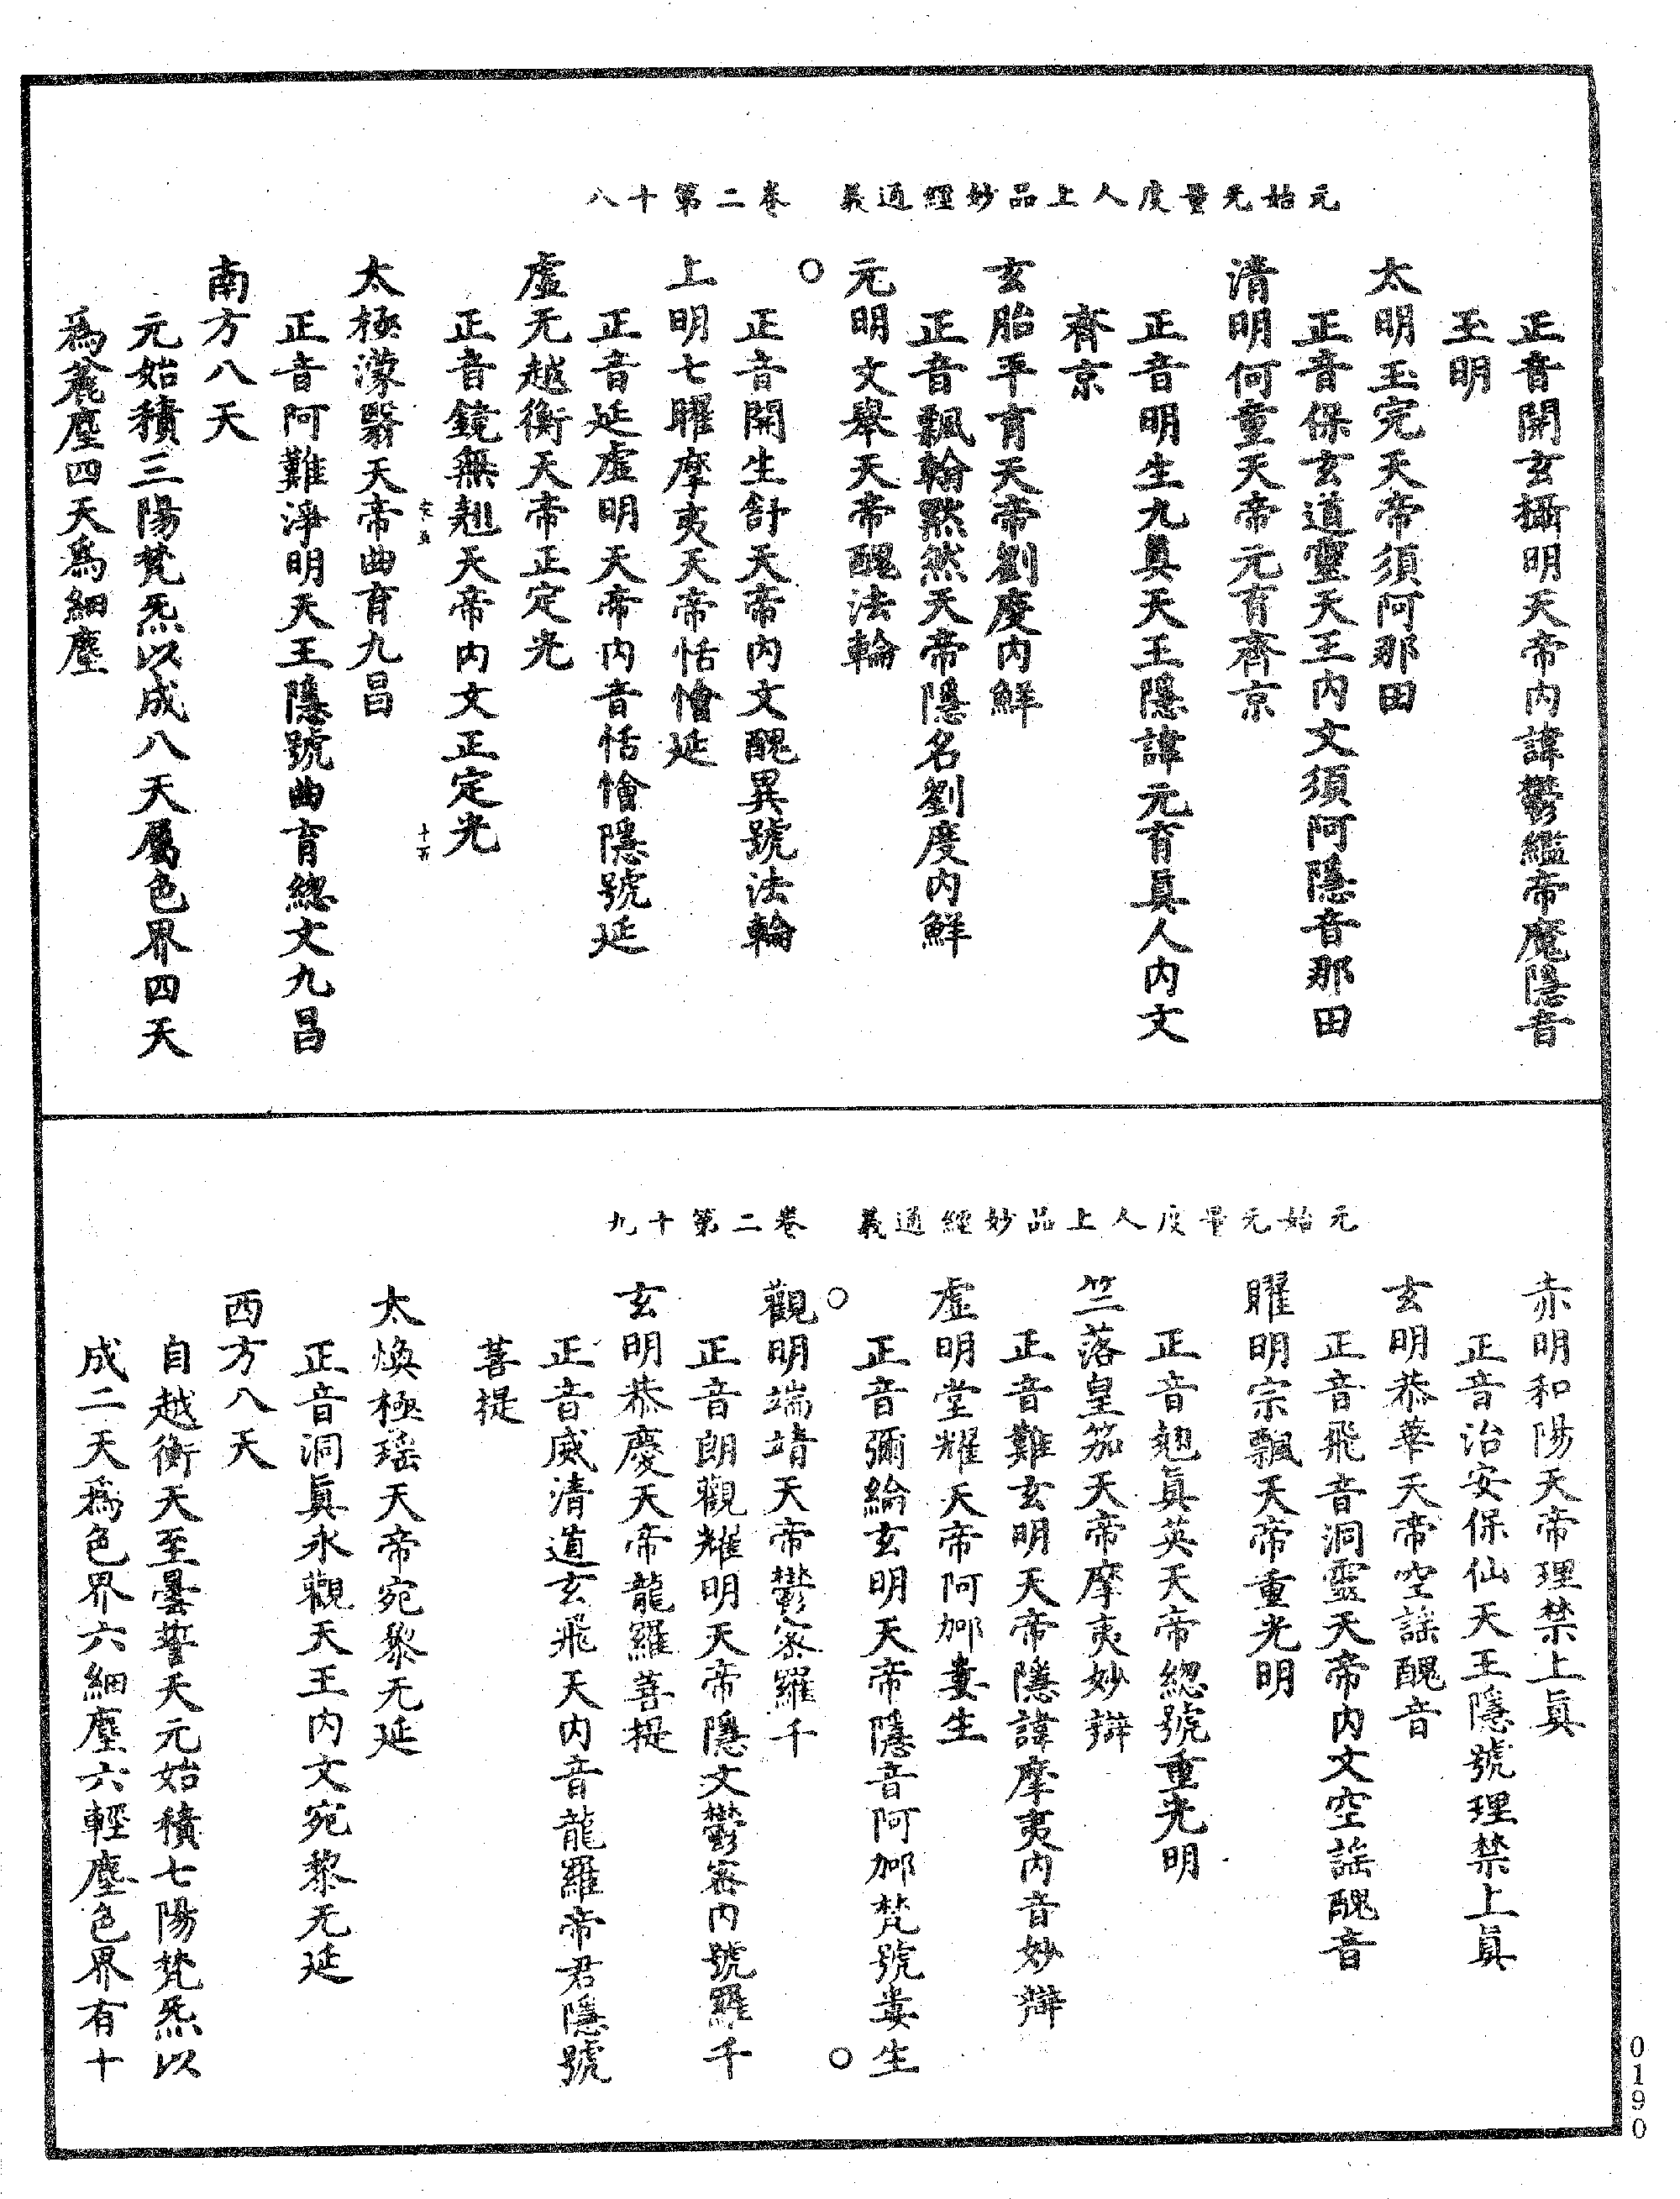 元始无量度人上品妙經通義　卷二第十八
正音開玄攝明天帝內諱鬱繿帝魔隱音
玉明
太明玉完天帝須阿那田
正音保玄道靈天王內文須阿隱音那田
清明何童天帝元育齊京
正音明生九眞天王隱諱元育眞人內文
齊京
玄胎平育天帝劉度內鮮
正音飄輪黙然天帝隱名劉度內鮮
元明文舉天帝醜法輪
○
正音開生舒天帝內文醜異號法輪
上明七曜摩夷天帝恬憎延
正音延虛明天帝內音恬憎隱號延
虛无越衡天帝正定光
正音鏡無翘天帝內文正定光
太極濛翳天帝曲育九昌
正音阿難淨明天王隱號曲育總文九昌
南方八天
元始積三陽梵炁以成八天屬色界四天
爲麁塵四天爲細塵
元始无量度人上品妙經通義　卷二第十九
赤明和陽天帝理禁上眞
正音治安保仙天王隱號理禁上眞
玄明恭華天帝空謠醜音
正音飛音洞靈天帝內文空謠醜音
曜明宗飄天帝重光明
正音翘眞英天帝總號重光明
竺落皇笳天帝摩夷妙辯
正音難玄明天帝隱諱摩夷內音妙辯
虛明堂耀天帝阿䣕婁生
正音彌綸玄明天帝隱音阿䣕梵號婁生
○　○
觀明端靖天帝鬱密羅千
正音朗觀耀明天帝隱文鬱密內號羅千
玄明恭慶天帝龍羅菩提
正音威清道玄飛天內音龍羅帝君隱號
菩提
太煥極瑤天帝宛黎无延
正音洞眞永觀天王內文宛黎无延
西方八天
自越衡天至曇誓天元始積七陽梵炁以
成二天爲色界六細塵六輕塵色界有十
0190